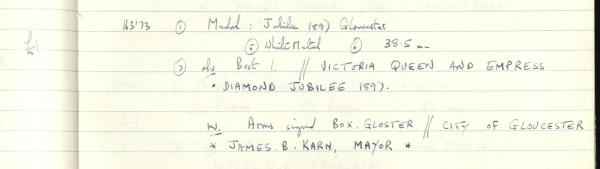 163'73 ① Medal: Jubilee 1897 Gloucester
⑤ White Metal ⑥ 38.5 mm
③ obv Bust l. // VICTORIA QUEEN AND EMPRESS
• DIAMOND JUBILEE 1897.
rv. Arms signed BOX. GLOSTER // CITY OF GLOUCESTER
* JAMES. B. KARN, MAYOR *